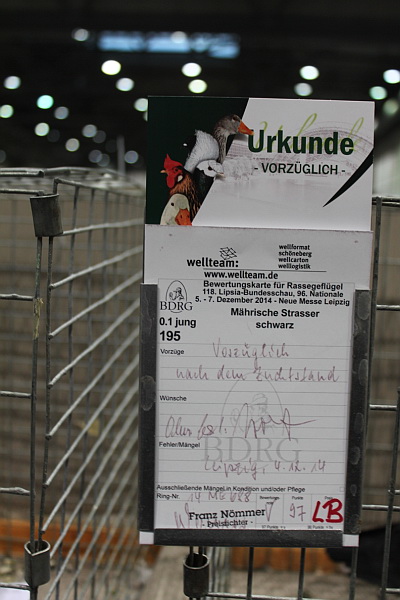 Urkunde
- VORZÜGLICH -
wellteam:
wellformat
schöneberg
wellcarton
welllogistik
www.wellteam.de
Bewertungskarte für Rassegeflügel
118. Lipsia-Bundesschau, 96. Nationale
5. - 7. Dezember 2014 - Neue Messe Leipzig
BDRG
Mährische Strasser
0.1 jung
schwarz
195
Vorzüge
Vorzüglich
nach dem Zuchtstand
Wünsche
BDRG
Fehler/Mängel
Leipzig, 4.12.14
Ausschließende Mängel in Kondition und/oder Pflege
Ring-Nr.
Punkte
97
LB
Franz Nömmer
- Preisrichter -